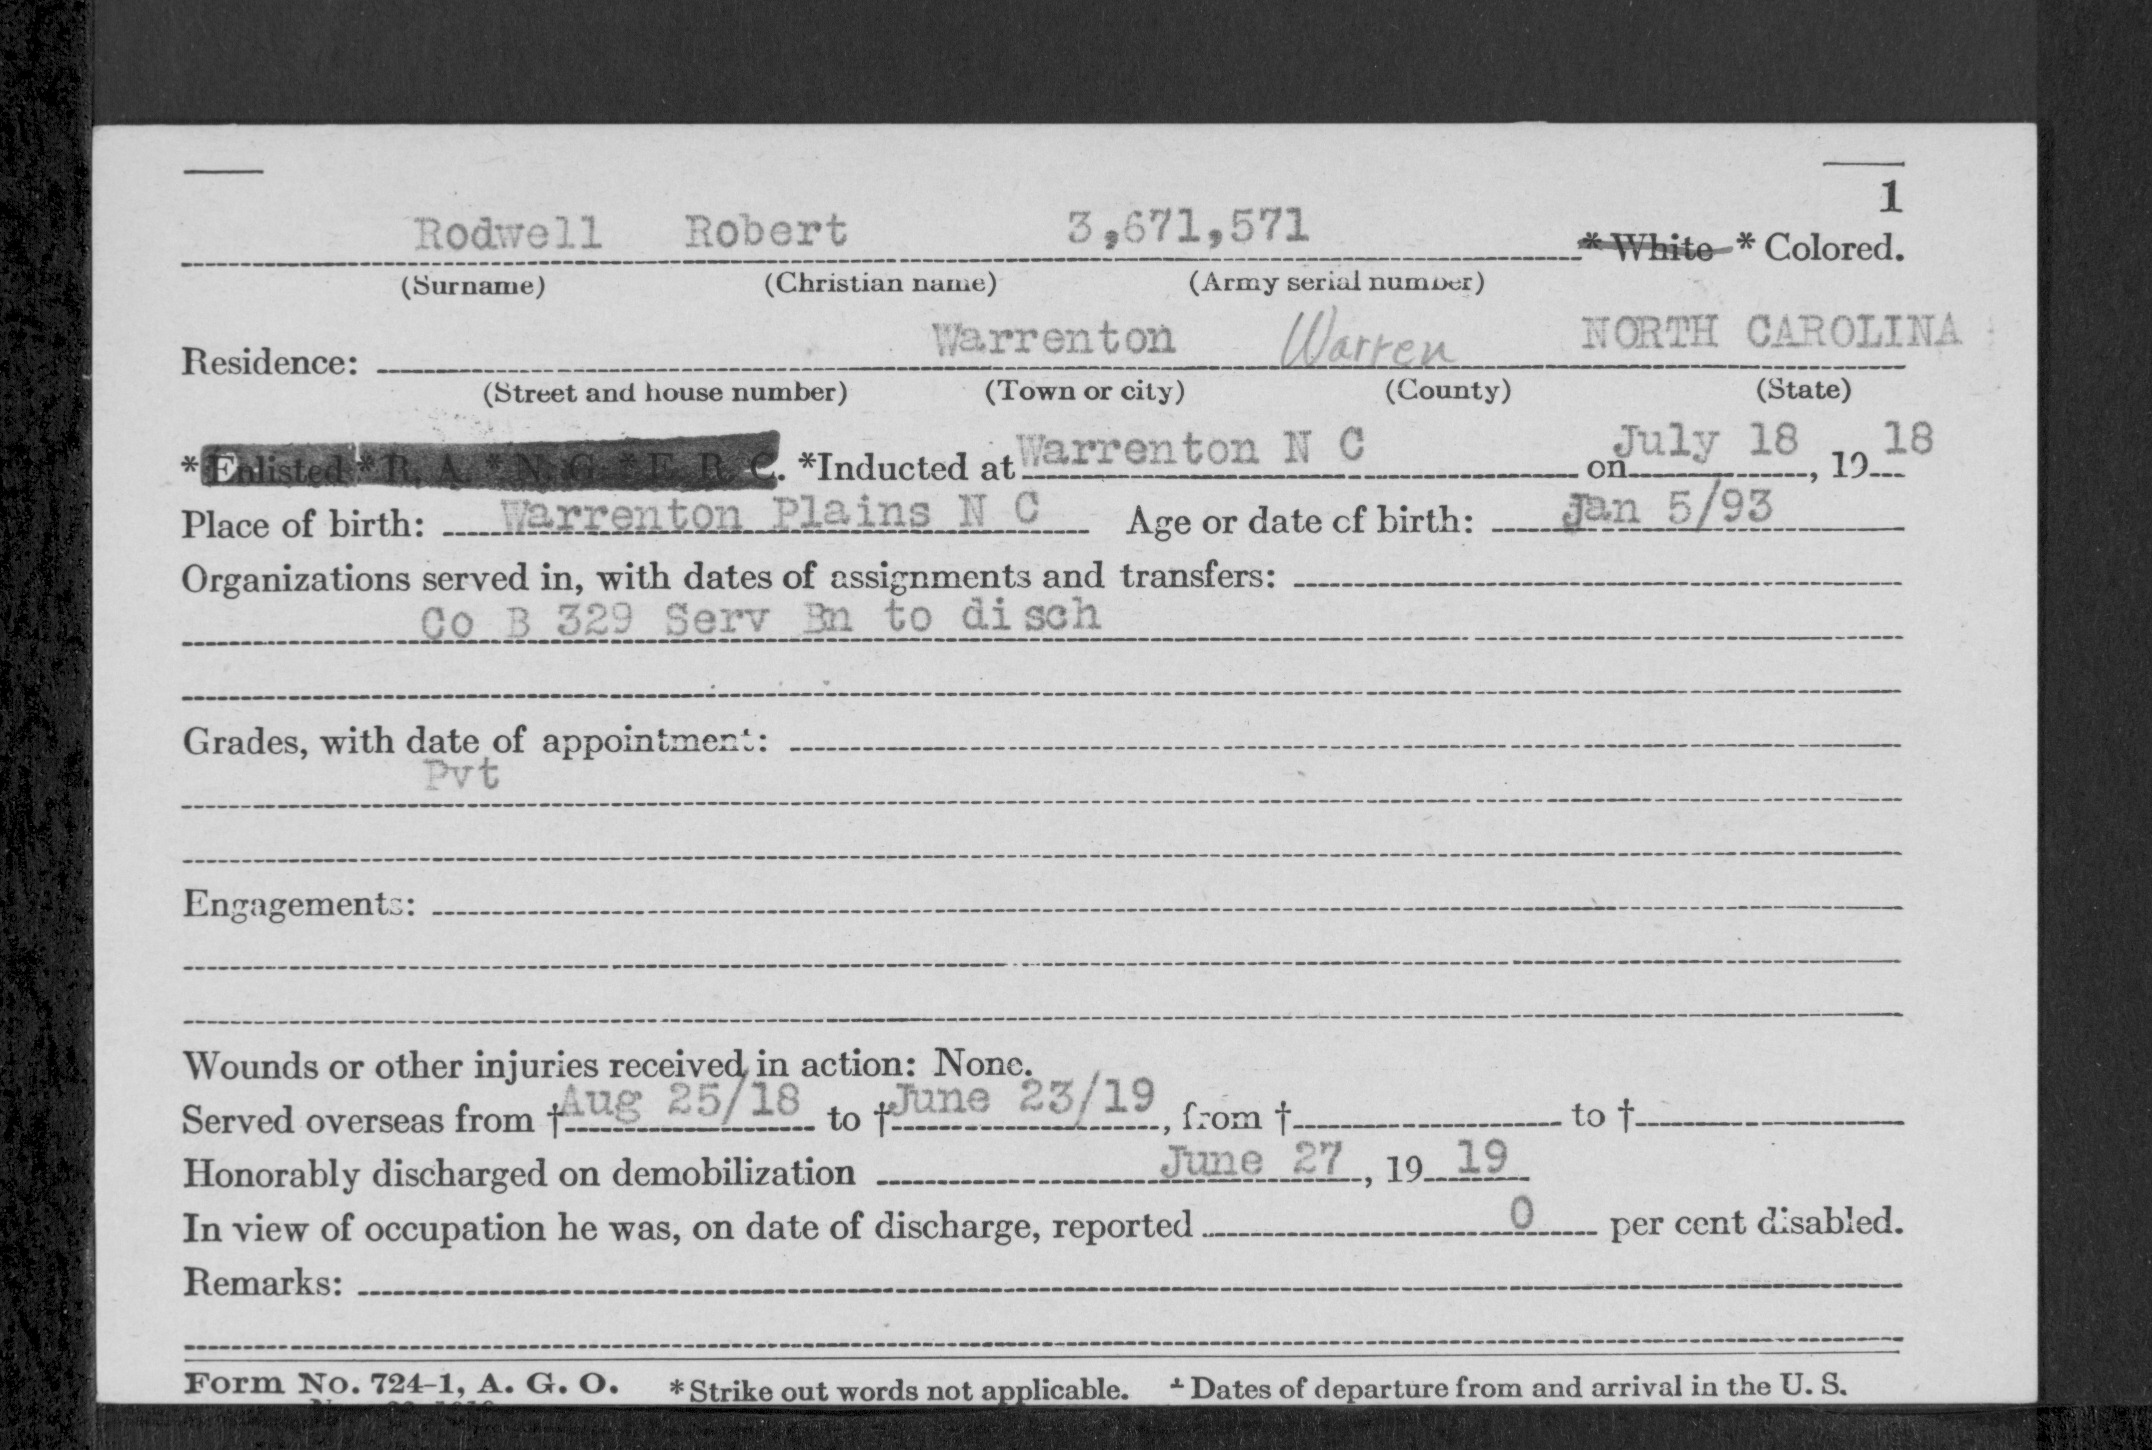 1
Rodwell Robert 3,671,571 * White * Colored.
(Surname) (Christian name) (Army serial number)
Residence: Warrenton Warren NORTH CAROLINA
(Street and house number) (Town or city) (County) (State)
* Enlisted * R. A. * N. G. * E. R. C. *Inducted at Warrenton N C on July 18, 19 18
Place of birth: Warrenton Plains N C Age or date of birth: Jan 5/93
Organizations served in, with dates of assignments and transfers:
Co B 329 Serv Bn to disch
Grades, with date of appointment:
Pvt
Engagements:
Wounds or other injuries received in action: None.
Served overseas from † Aug 25/18 to † June 23/19, from † to †
Honorably discharged on demobilization June 27, 19 19
In view of occupation he was, on date of discharge, reported 0 per cent disabled.
Remarks:
Form No. 724-1, A. G. O. * Strike out words not applicable. † Dates of departure from and arrival in the U. S.